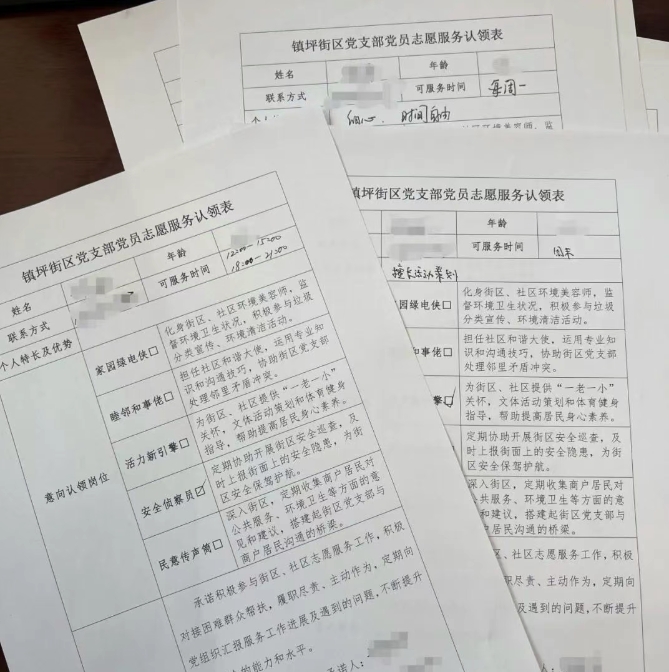 镇坪街区党支部党员志愿服务认领表
姓名
年龄
联系方式
可服务时间
每周一
细心、时间自由
镇坪街区党支部党员志愿服务认领表
年龄
可服务时间
周末
擅长活动策划
家园绿电侠□
化身街区、社区环境美容师，监
督环境卫生状况，积极参与垃圾
分类宣传、环境清洁活动。
和事佬□
担任社区和谐大使，运用专业知
识和沟通技巧，协助街区党支部
处理邻里矛盾冲突。
为街区、社区提供“一老一小”
关怀，文体活动策划和体育健身
指导，帮助提高居民身心素养。
定期协助开展街区安全巡查，及
时上报街面上的安全隐患，为街
区安全保驾护航。
深入街区，定期收集商户居民对
公共服务、环境卫生等方面的意
见和建议，搭建起街区党支部与
商户居民沟通的桥梁。
区、社区志愿服务工作，积极
职尽责、主动作为，定期向
及遇到的问题，不断提升
镇坪街区党支部党员志愿服务认领表
姓名
年龄
联系方式
可服务时间
12:00-15:00
18:00-21:00
个人特长及优势
意向认领岗位
家园绿电侠□
化身街区、社区环境美容师，监
督环境卫生状况，积极参与垃圾
分类宣传、环境清洁活动。
睦邻和事佬□
担任社区和谐大使，运用专业知
识和沟通技巧，协助街区党支部
处理邻里矛盾冲突。
活力新引擎□
为街区、社区提供“一老一小”
关怀，文体活动策划和体育健身
指导，帮助提高居民身心素养。
安全侦察员☑
定期协助开展街区安全巡查，及
时上报街面上的安全隐患，为街
区安全保驾护航。
民意传声筒□
深入街区，定期收集商户居民对
公共服务、环境卫生等方面的意
见和建议，搭建起街区党支部与
商户居民沟通的桥梁。
承诺积极参与街区、社区志愿服务工作，积极
对接困难群众帮扶，履职尽责、主动作为，定期向
党组织汇报服务工作进展及遇到的问题，不断提升
的能力和水平。
承诺人：